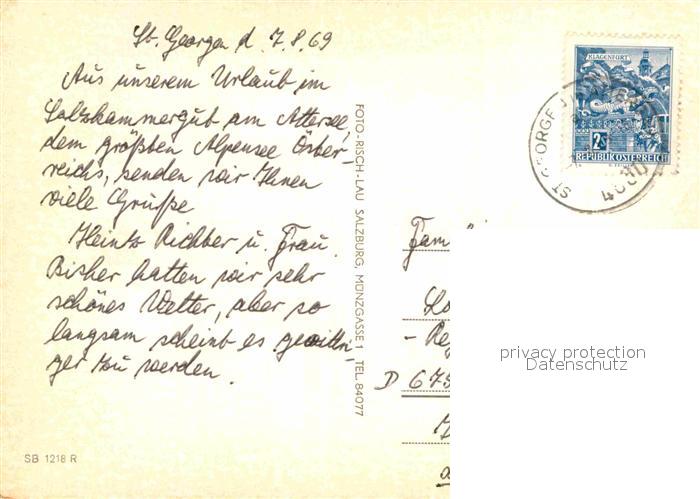 St. Georgen d. 7.8.69
Aus unserem Urlaub im
Salzkammergut am Attersee,
dem größten Alpensee Öster-
reichs, senden wir Ihnen
viele Grüße
Heintz Richter u. Frau.
Bisher hatten wir sehr
schönes Wetter, aber so
langsam scheint es gewitt-
ger zu werden.
SB 1218 R
FOTO-RISCH-LAU SALZBURG, MÜNZGASSE 1 TEL. 84077
KLAGENFURT
2S
REPUBLIK ÖSTERREICH
ST. GEORGE
Fam
D 675
privacy protection
Datenschutz